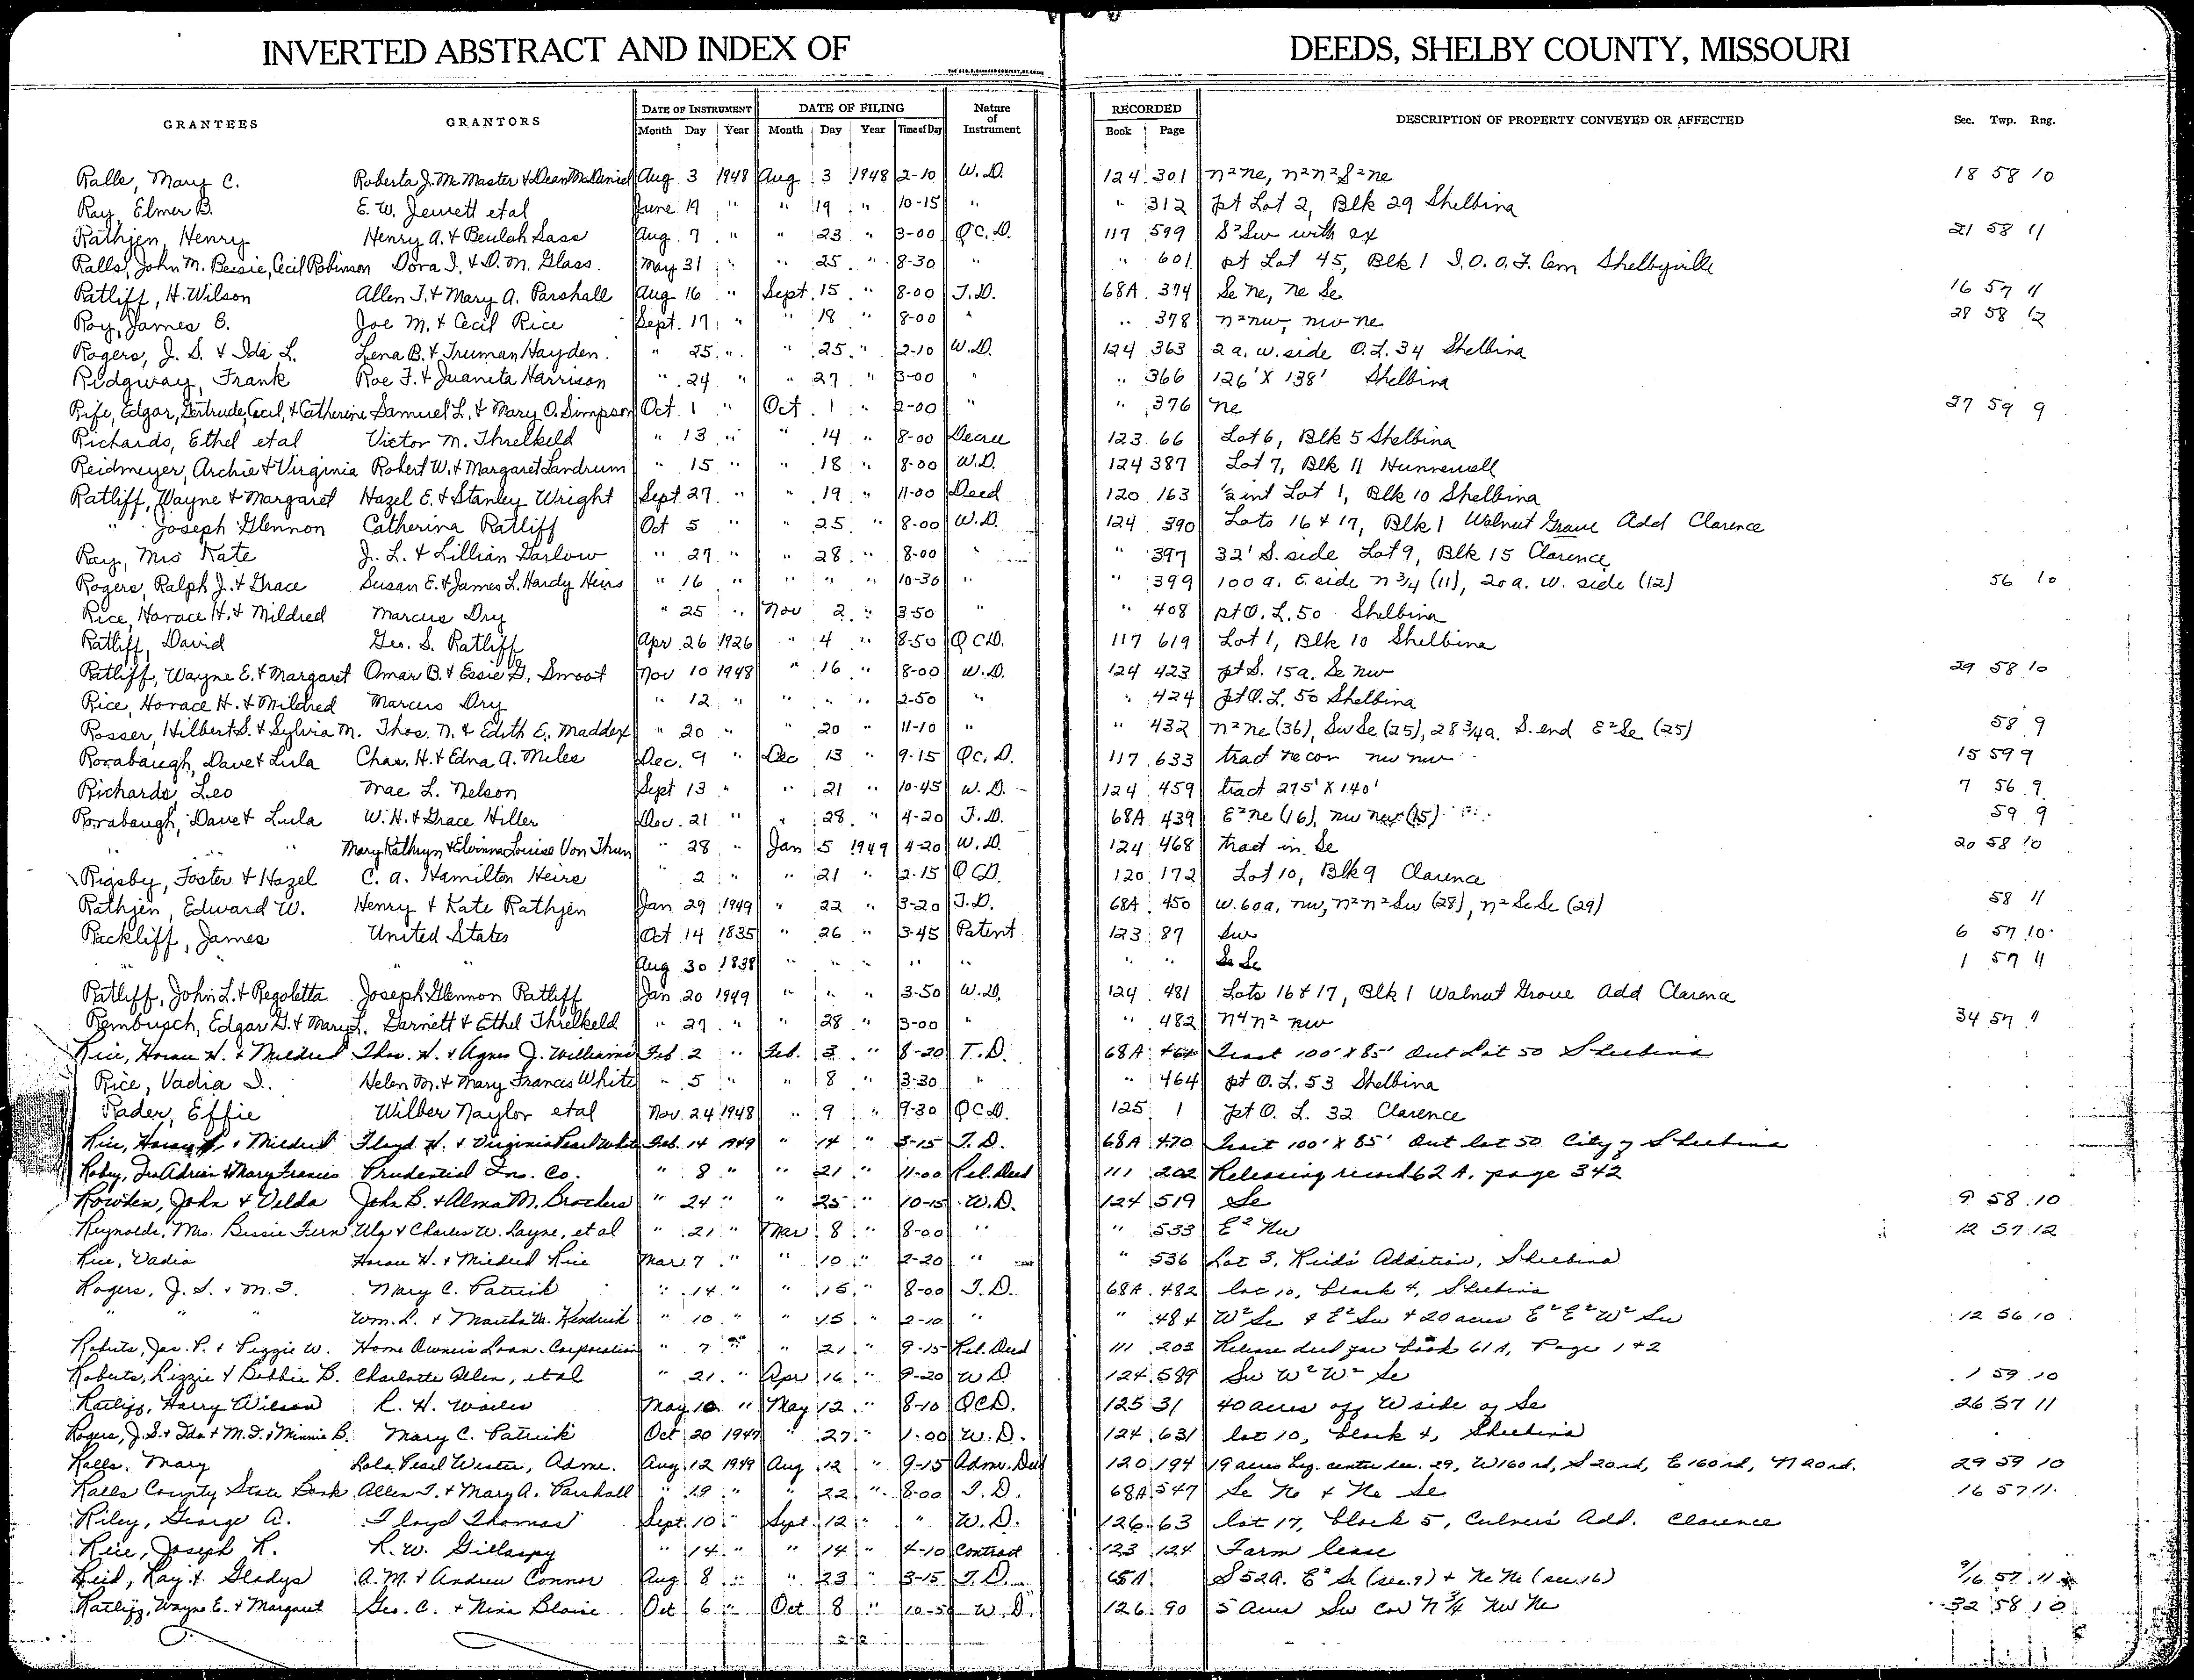 INVERTED ABSTRACT AND INDEX OF DEEDS, SHELBY COUNTY, MISSOURI
GRANTEES GRANTORS DATE OF INSTRUMENT DATE OF FILING Nature of Instrument RECORDED DESCRIPTION OF PROPERTY CONVEYED OR AFFECTED Sec. Twp. Rng.
Month Day Year Month Day Year Time of Day Book Page
Ralls, Mary C. Roberta J. McMaster & Dean McDaniel Aug 3 1948 Aug 3 1948 2-10 W.D. 124 301 n²ne, n²n²S²ne 18 58 10
Ray, Elmer B. E. W. Jewett etal June 19 " " 19 " 10-15 " " 312 pt Lot 2, Blk 29 Shelbina
Rathjen, Henry Henry A. & Beulah Sass Aug. 7 " " 23 " 3-00 QC.D. 117 599 S²Sw with ex 21 58 11
Ralls, John M. Bessie, Cecil Robinson Dora I. & D. M. Glass. May 31 " " 25 " 8-30 " " 601 pt Lot 45, Blk 1 I.O.O.F. Cem Shelbyville
Ratliff, H. Wilson Allen T. & Mary A. Parshall Aug 16 " Sept. 15 " 8-00 T.D. 68A 374 Se ne, ne Se 16 57 11
Roy, James E. Joe M. & Cecil Rice Sept. 17 " " 18 " 8-00 " " 378 n²nw, nw ne 28 58 12
Rogers, J. S. & Ida L. Lena B. & Truman Hayden. " 25 " " 25 " 2-10 W.D. 124 363 2 a. w. side O.L. 34 Shelbina
Ridgway, Frank Roe F. & Juanita Harrison " 24 " " 27 " 3-00 " " 366 126' X 138' Shelbina
Rife, Edgar, Gertrude, Cecil, & Catherine Samuel L. & Mary O. Simpson Oct 1 " Oct. 1 " 2-00 " " 376 ne 27 59 9
Richards, Ethel etal Victor M. Threlkeld " 13 " " 14 " 8-00 Decree 123 66 Lot 6, Blk 5 Shelbina
Reidmeyer, Archie & Virginia Robert W. & Margaret Landrum " 15 " " 18 " 8-00 W.D. 124 387 Lot 7, Blk 11 Hunnewell
Ratliff, Wayne & Margaret Hazel E. & Stanley Wright Sept. 27 " " 19 " 11-00 Deed 120 163 int Lot 1, Blk 10 Shelbina
" Joseph Glennon Catherina Ratliff Oct 5 " " 25 " 8-00 W.D. 124 390 Lots 16 & 17, Blk 1 Walnut Grove Add Clarence
Ray, Mrs Kate J. L. & Lillian Garlow " 27 " " 28 " 8-00 " " 397 32' S. side Lot 9, Blk 15 Clarence
Rogers, Ralph J. & Grace Susan E. & James L. Hardy Heirs " 16 " " " " 10-30 " " 399 100 a. E. side n 3/4 (11), 20 a. w. side (12) 56 10
Rice, Horace H. & Mildred Marcus Dry " 25 " Nov 2 " 3-50 " " 408 pt O.L. 50 Shelbina
Ratliff, David Geo. S. Ratliff Apr 26 1926 " 4 " 8-50 QCD. 117 619 Lot 1, Blk 10 Shelbina
Ratliff, Wayne E. & Margaret Omar B. & Essie G. Smoot Nov 10 1948 " 16 " 8-00 W.D. 124 423 pt S. 15a. Se nw 29 58 10
Rice, Horace H. & Mildred Marcus Dry " 12 " " " " 2-50 " " 424 pt O.L. 50 Shelbina
Rosser, Hilbert S. & Sylvia M. Thos. N. & Edith E. Maddex " 20 " " 20 " 11-10 " " 432 n²ne (36), Sw Se (25), 28 3/4 a. S. end E²Se (25) 58 9
Rorabaugh, Dave & Lula Chas. H. & Edna A. Miles Dec. 9 " Dec 13 " 9-15 QC.D. 117 633 tract ne cor nw nw 15 59 9
Richards, Leo Mae L. Nelson Sept 13 " " 21 " 10-45 W.D. 124 459 tract 275' X 140' 7 56 9
Rorabaugh, Dave & Lula W. H. & Grace Hiller Dec. 21 " " 28 " 4-20 T.D. 68A 439 E²ne (16), nw nw (15) 59 9
" " " Mary Kathryn & Elvinna Louise Von Thun " 28 " Jan 5 1949 4-20 W.D. 124 468 tract in Se 20 58 10
Rigsby, Foster & Hazel C. A. Hamilton Heirs " 2 " " 21 " 2-15 QCD. 120 172 Lot 10, Blk 9 Clarence
Rathjen, Edward W. Henry & Kate Rathjen Jan 29 1949 " 22 " 3-20 T.D. 68A 450 W. 60a, nw, n²n²Sw (28), n²SeSe (29) 58 11
Rackliff, James United States Oct 14 1835 " 26 " 3-45 Patent 123 87 Sw 6 57 10
" " " " Aug 30 1838 " " " " " " " Se Se 1 57 11
Ratliff, John L. & Regoletta Joseph Glennon Ratliff Jan 20 1949 " " " 3-50 W.D. 124 481 Lots 16 & 17, Blk 1 Walnut Grove Add Clarence
Rembusch, Edgar G. & Mary L. Garnett & Ethel Threlkeld " 27 " " 28 " 3-00 " " 482 n⁴n² nw 34 57 11
Rice, Horace H. & Mildred Thos. H. & Agnes J. Williams Feb. 2 " Feb. 3 " 8-20 T.D. 68A Tract 100' X 85' Out Lot 50 Shelbina
Rice, Vadia I. Helen M. & Mary Frances White " 5 " " 8 " 3-30 " " 464 pt O.L. 53 Shelbina
Rader, Effie Wilber Naylor etal Nov. 24 1948 " 9 " 9-30 QCD. 125 1 pt O. L. 32 Clarence
Rice, Horace H. & Mildred Floyd H. & Virginia Pearl White Feb. 14 1949 " 14 " 3-15 T.D. 68A 470 Tract 100' X 85' Out lot 50 City of Shelbina
Roby, Ira Adrian & Mary Frances Prudential Ins. Co. " 8 " " 21 " 11-00 Rel. Deed 111 202 Releasing record 62 A, page 342
Rowden, John & Velda John B. & Alma M. Brockers " 24 " " 25 " 10-15 W.D. 124 519 Se 9 58 10
Reynolds, Mrs. Bessie Fern & Charles W. Layne, et al " 21 " Mar 8 " 8-00 " " 533 E² Nw 12 57 12
Rice, Vadia Horace H. & Mildred Rice Mar 7 " " 10 " 2-20 " " 536 Lot 3, Reid's Addition, Shelbina
Rogers, J. S. & M. I. Mary C. Patrick " 14 " " 15 " 8-00 T.D. 68A 482 lot 10, block 4, Shelbina
" " " Wm. L. & Martha M. Kendrick " 10 " " 15 " 2-10 " " 484 W² Se & E² Sw & 20 acres E² E² W² Sw 12 56 10
Roberts, Jas. P. & Peggie W. Home Owners Loan Corporation " 7 " " 21 " 9-15 Rel. Deed 111 203 Release deed book 61A, Page 1 & 2
Roberts, Lizzie & Debbie B. Charlotte Allen, et al " 21 " Apr 16 " 9-20 W.D. 124 589 Sw W² W² Se 1 59 10
Ratliff, Harry Wilson R. H. Wailes May 10 " May 12 " 8-10 QCD. 125 31 40 acres off W side of Se 26 57 11
Rogers, J. S. & Ida & M. I. & Minnie B. Mary C. Patrick Oct 20 1947 " 27 " 1-00 W.D. 124 631 lot 10, block 4, Shelbina
Ralls, Mary Lola Pearl Wester, Adm. Aug. 12 1949 Aug 12 " 9-15 Adm. Deed 120 194 19 acres beg. center Sec. 29, W 160 rd, S 20 rd, E 160 rd, N 20 rd. 29 59 10
Ralls County State Bank Allen T. & Mary A. Parshall " 19 " " 22 " 8-00 T.D. 68A 547 Se Ne & Ne Se 16 57 11
Riley, George A. Floyd Thomas Sept. 10 " Sept. 12 " " W.D. 126 63 lot 17, block 5, Culver's Add. Clarence
Rice, Joseph R. R. W. Gillaspy " 14 " " 14 " 4-10 Contract 123 124 Farm lease
Reid, Ray & Gladys A. M. & Andrew Connor Aug 8 " " 23 " 3-15 T.D. 65A S 52a. E² Se (sec. 9) & Ne Ne (sec. 16) 9/16 57 11
Ratliff, Wayne E. & Margaret Geo. C. & Nina Blaise Oct 6 " Oct 8 " 10-50 W.D. 126 90 5 acres Sw cor N 3/4 Nw Ne 32 58 10